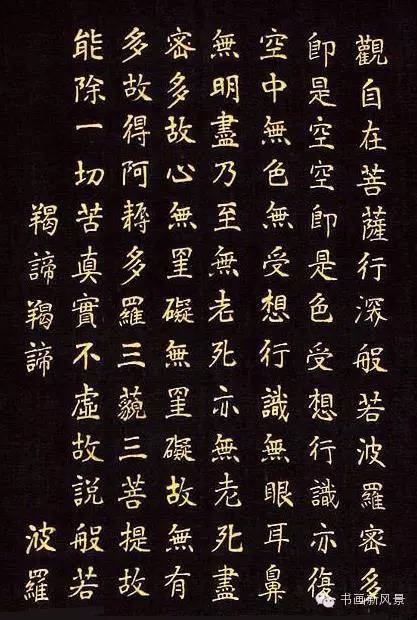 觀自在菩薩行深般若波羅密多
即是空空即是色受想行識亦復
空中無色無受想行識無眼耳鼻
無明盡乃至無老死亦無老死盡
密多故心無罣礙無罣礙故無有
多故得阿耨多羅三藐三菩提故
能除一切苦真實不虛故説般若
羯諦羯諦 波羅
书画新风景